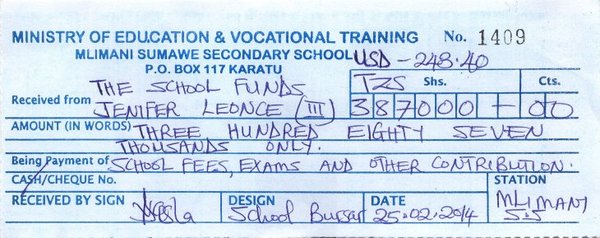 MINISTRY OF EDUCATION & VOCATIONAL TRAINING No. 1409
MLIMANI SUMAWE SECONDARY SCHOOL USD - 248.40
P.O. BOX 117 KARATU
THE SCHOOL FUNDS TZS Shs. Cts.
Received from JENIFER LEONCE (III) 387000 - 00
AMOUNT (IN WORDS) THREE HUNDRED EIGHTY SEVEN
THOUSANDS ONLY.
Being Payment of SCHOOL FEES, EXAMS AND OTHER CONTRIBUTION.
CASH/CHEQUE No. STATION
RECEIVED BY SIGN DESIGN School Bursar DATE 25.02.2014 MLIMANI
S.S